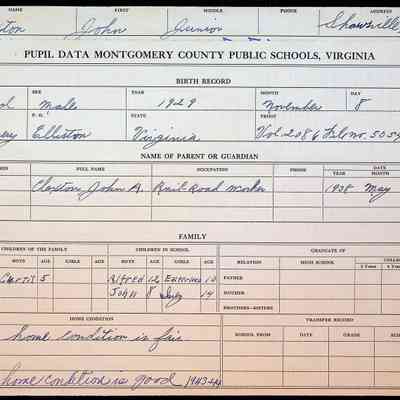 NAME FIRST MIDDLE PHONE ADDRESS
John Junior Shawsville
PUPIL DATA MONTGOMERY COUNTY PUBLIC SCHOOLS, VIRGINIA
BIRTH RECORD
SEX YEAR MONTH DAY
Male 1929 November 8
P.O. STATE PROOF
Elliston Virginia Vol. 2086 File no. 5054
NAME OF PARENT OR GUARDIAN
FULL NAME OCCUPATION PHONE DATE
YEAR MONTH
Claxton, John A. Rail-Road Worker 1938 May
FAMILY
CHILDREN OF THE FAMILY CHILDREN IN SCHOOL GRADUATE OF
BOYS AGE GIRLS AGE BOYS AGE GIRLS AGE RELATION HIGH SCHOOL
2 Years 4 Years
Curtis 5 Alfred 12
FATHER
John 8 14
MOTHER
BROTHERS—SISTERS
HOME CONDITION TRANSFER RECORD
SCHOOL FROM DATE GRADE SCHOOL
home condition is fair
home condition is good 1943-44